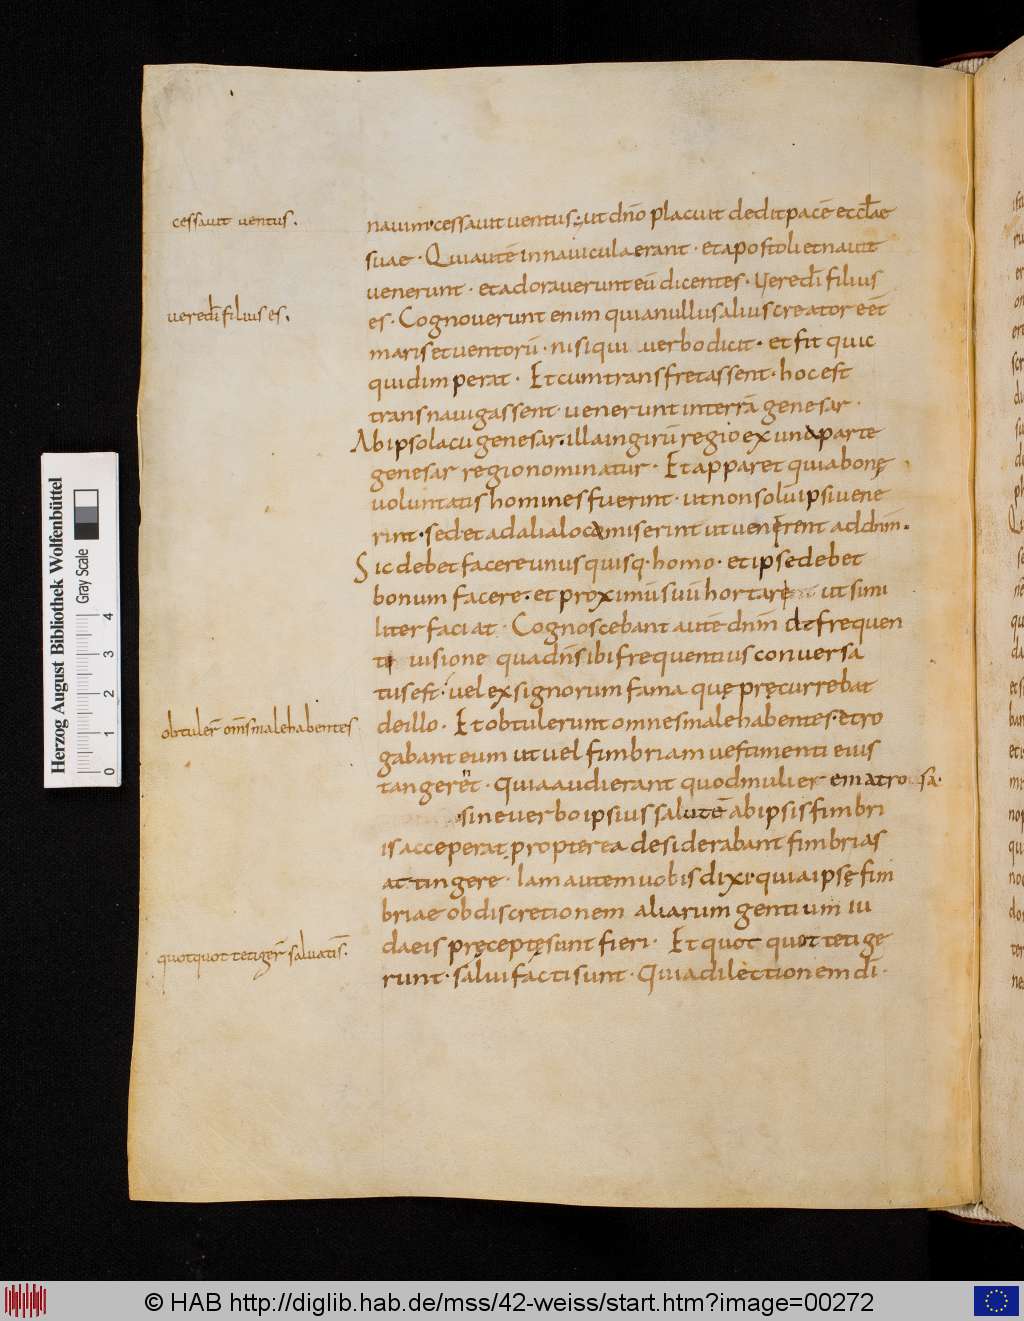 cessauit uentus.
uere dī filius es.
obtuler̄ om̄s male habentes
quotquot tetiger̄ saluati s̄.
nauim. cessauit uentus; ut dn̄o placuit dedit pacē eccl̄ae
suae · Qui autē in nauicula erant · et apostoli et nauit
uenerunt · et adorauerunt eū dicentes · Uere dī filius
es · Cognouerunt enim quia nullus alius creator eēt
maris et uentorū · nisi qui uerbo dicit · et fit quic
quid imperat · Et cum transfretassent · hoc est
transnauigassent · uenerunt in terrā genesar ·
Ab ipso lacu genesar. illa in girū regio ex una parte
genesar regio nominatur · Et apparet quia bonę
uoluntatis homines fuerint · ut non solū ipsi uene
rint · sed et ad alia loca miserint ut uenerent ad dn̄m.
Sic debet facere unus quisq· homo · et ipse debet
bonum facere. et proximū suū hortare ut simi
liter faciat · Cognoscebant autē dn̄m de frequen
ti uisione qua dn̄s ibi frequentius conuersa
tus est · uel ex signorum fama quę pręcurrebat
de illo · Et obtulerunt omnes male habentes · et ro
gabant eum ut uel fimbriam uestimenti eius
tangerēt · Quia audierant quod mulier ematroisa ·
sine uerbo ipsius salutē ab ipsis fimbri
is acceperat propterea desiderabant fimbrias
attingere · Iam autem uobis dixi · quia ipsę fim
briae ob discretionem aliarum gentium iu
daeis pręceptę sunt fieri · Et quot quot tetige
runt · salui facti sunt · Quia dilectionem dī ·
Herzog August Bibliothek Wolfenbüttel
Gray Scale
0 1 2 3 4
© HAB http://diglib.hab.de/mss/42-weiss/start.htm?image=00272